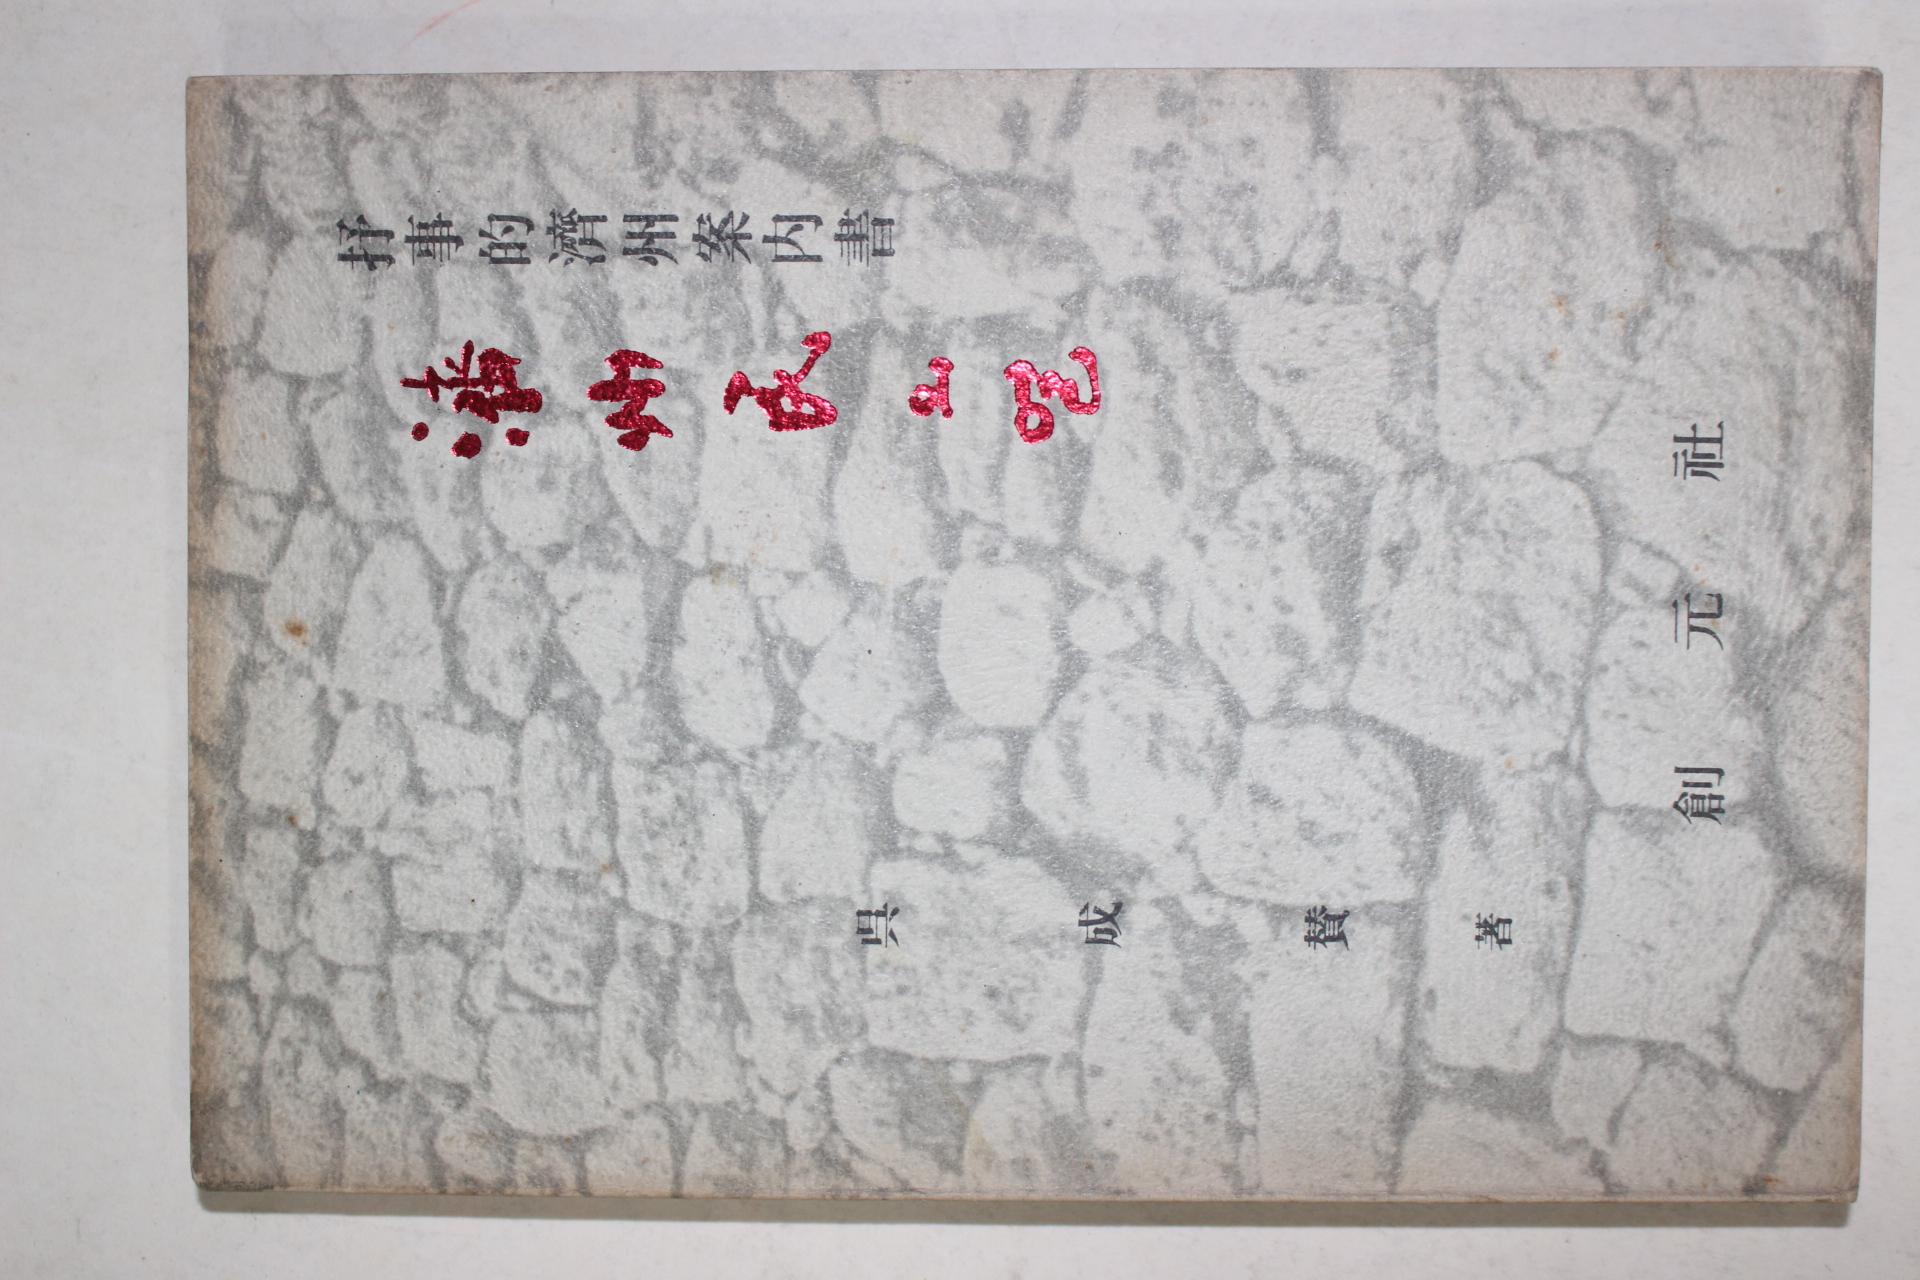 抒事的濟州案内書
濟州民의얼
呉成賛著
創元社